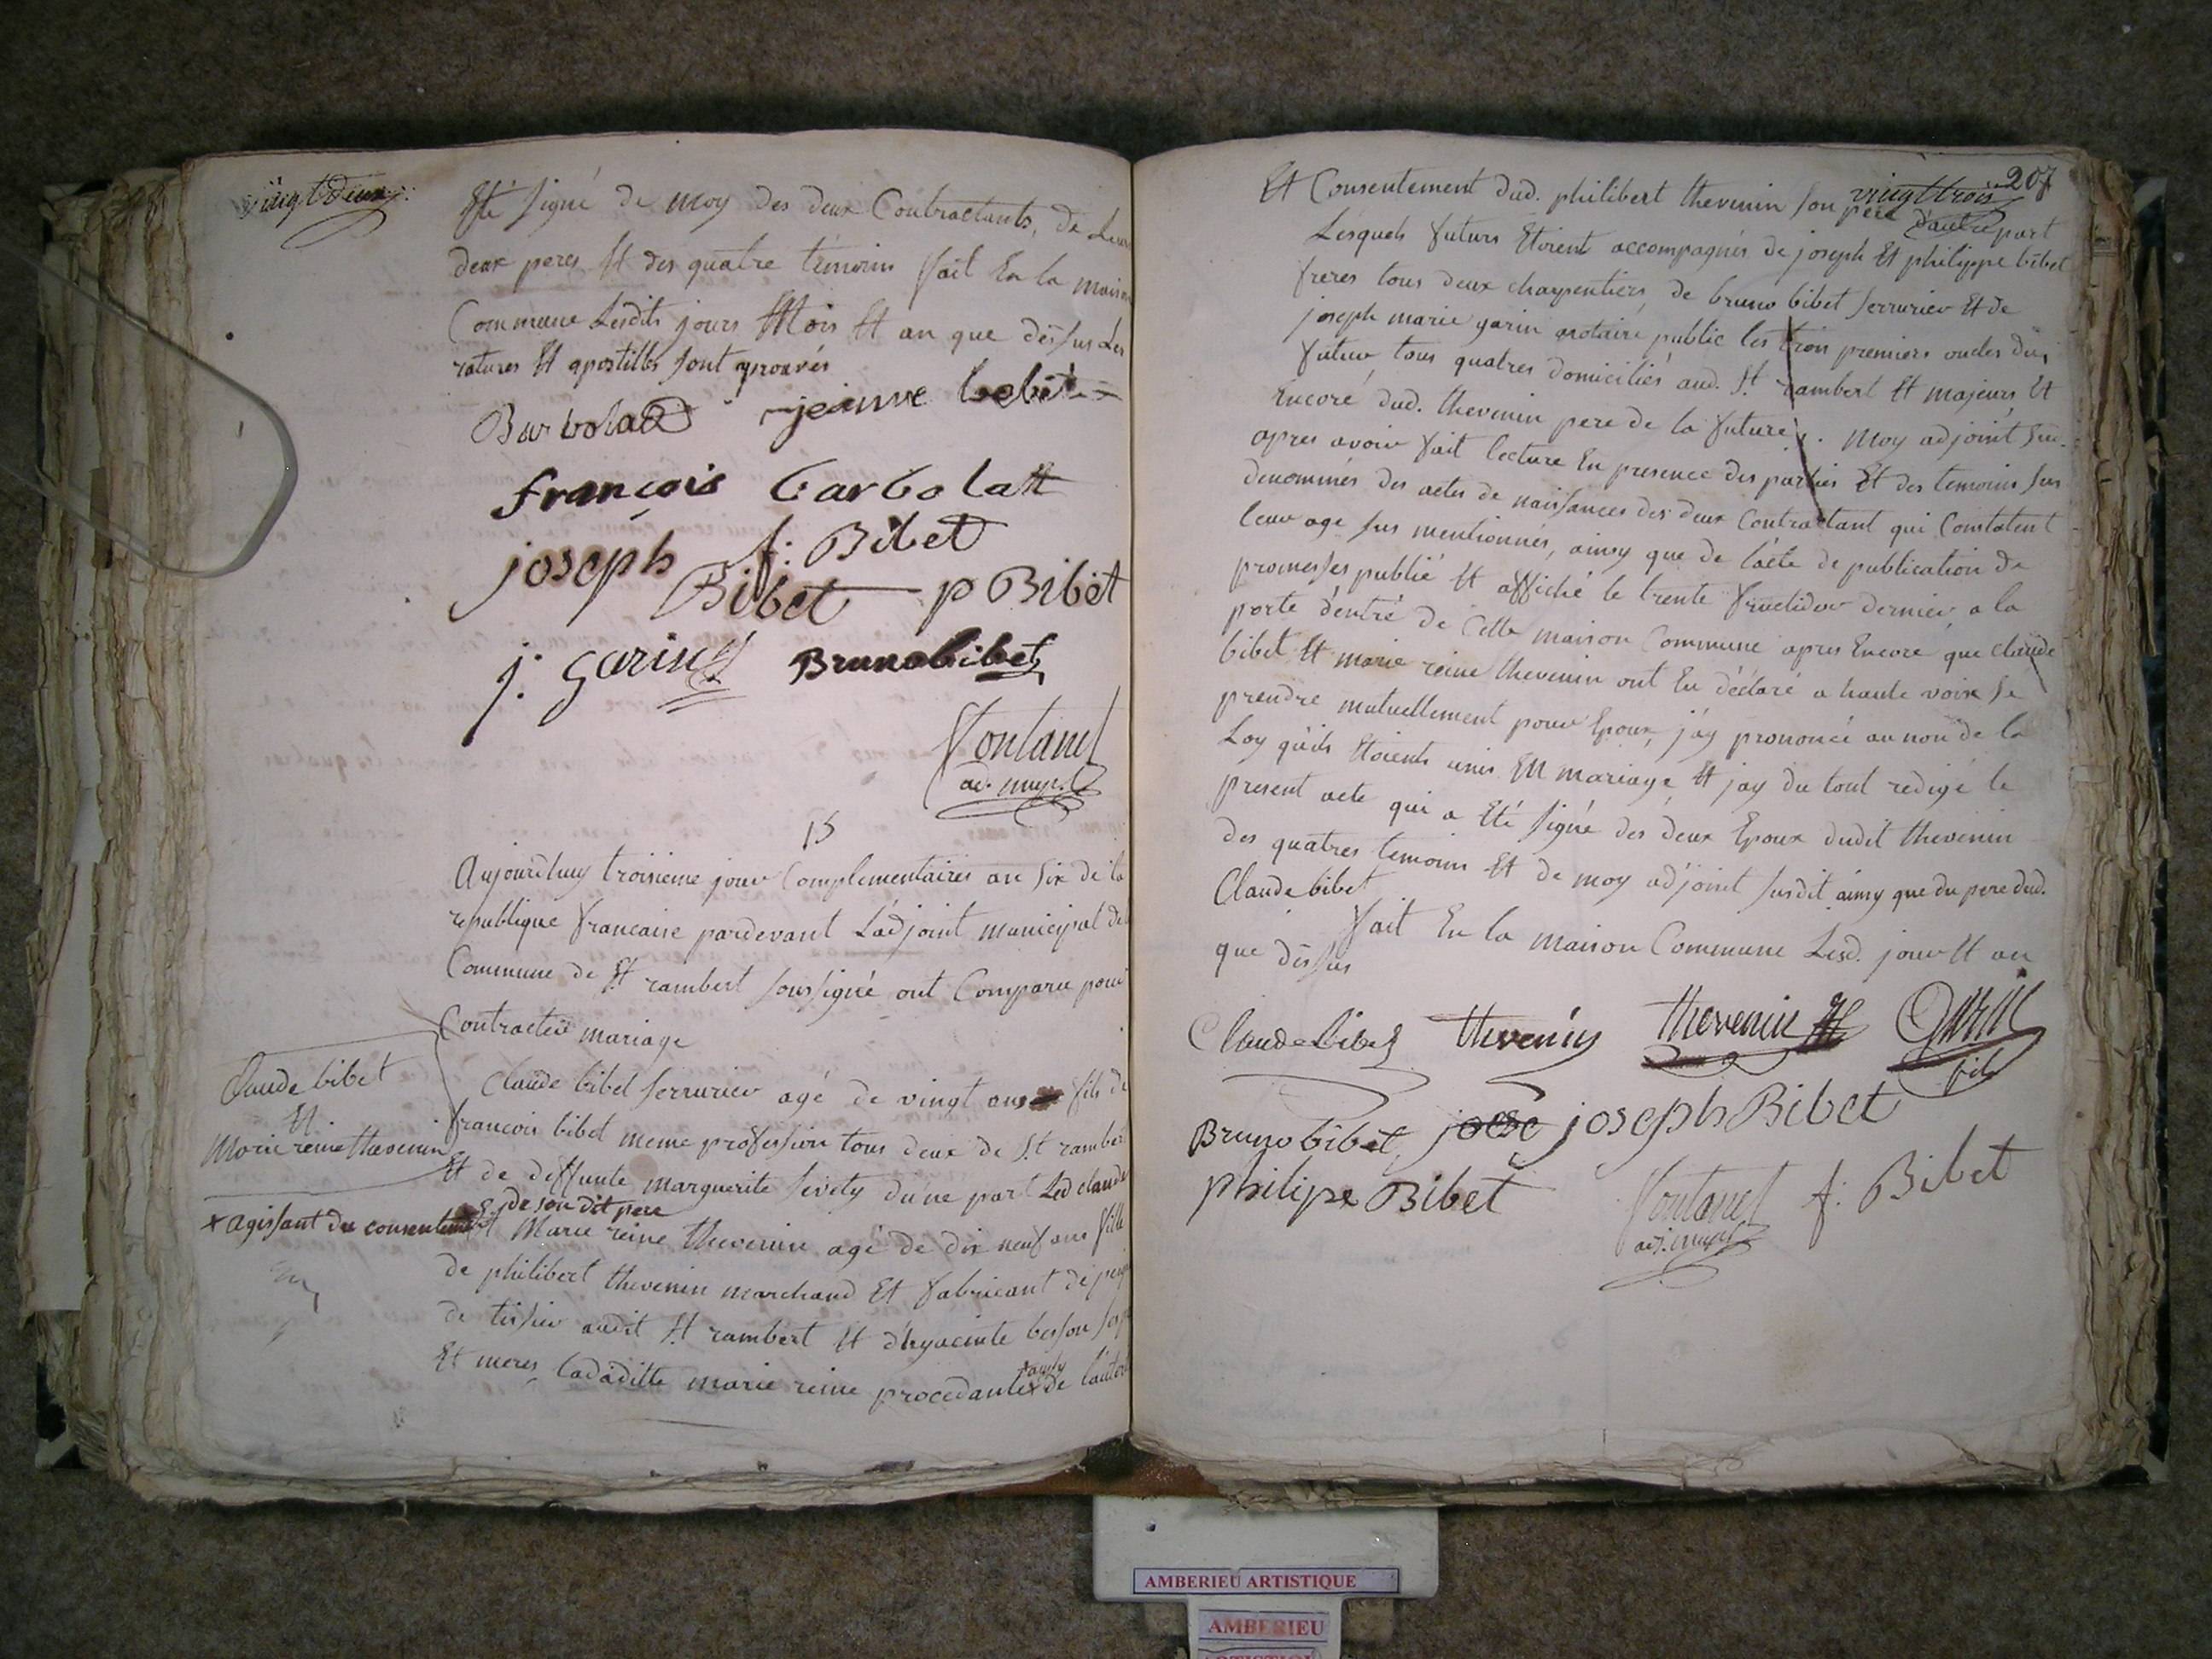 vingt deux
Eté signé de moy des deux Contractants, de Leurs
deux peres Et des quatre témoins fait En la maison
Commune Lesdits jours Mois Et an que dessus Les
ratures Et apostilles sont aprouvés
Barbolat jeanne bebit
françois barbolatt
joseph f: Bibet
Bibet p Bibet
j. Garin Bruno bibet
Fontanel
ad. mupl
15
Aujourdhuy troisieme jour Complementaires an six de la
republique francaise pardevant L'adjoint municipal de
Commune de St rambert soussigné ont Comparu pour
Contracter mariage
Claude bibet
Et
Marie reine thevenin
Claude bibet serrurier agé de vingt ans fils de
francois bibet meme profession tous deux de St rambert
Et de deffunte marguerite sivety d'une part Led claude
+ agissant du consentement de son dit pere
Et Marie reine thevenin agé de dix neuf ans fille
de philibert thevenin marchand Et fabricant de
de tissier audit St rambert Et d'hyacinte besson
Et meres, ladaditte marie reine procedante de l'autor
+ ausy
207
vingt trois
Et Consentement dud. philibert thevenin son pere d'autre part
Lesquels futurs Etoient accompagnés de joseph Et philippe bibet
freres tous deux charpentiers, de bruno bibet serrurier Et de
joseph marie garin notaire public les trois premiers oncles du
futur, tous quatres domiciliés aud. St rambert Et majeurs Et
Encore dud. thevenin pere de la future. Moy adjoint sus
apres avoir fait lecture En presence des parties Et des temoins sus
denominés des actes de naissances des deux Contractant qui Constatent
leur age sus mentionnés, ainsy que de l'acte de publication de
promesses publié Et affiché le trente fructidor dernier, a la
porte d'entré de Cette maison Commune apres Encore que claude
bibet Et marie reine thevenin ont Eu déclaré a haute voix se
prendre mutuellement pour Epoux, j'ay prononcé au non de la
Loy qu'ils Etoients unis En mariage Et jay du tout redigé le
present acte qui a Eté signé des deux Epoux dudit thevenin
des quatres temoins Et de moy adjoint susdit ainsy que du pere dud.
Claude bibet
fait En la maison Commune Lesd. jour Et an
que dessus
Claude bibet thevenin thevenin Garin
fils
Bruno bibet, joese joseph Bibet
philipe Bibet Fontanel f: Bibet
adj. mupl
AMBERIEU ARTISTIQUE
AMBERIEU
ARTISTIQUE